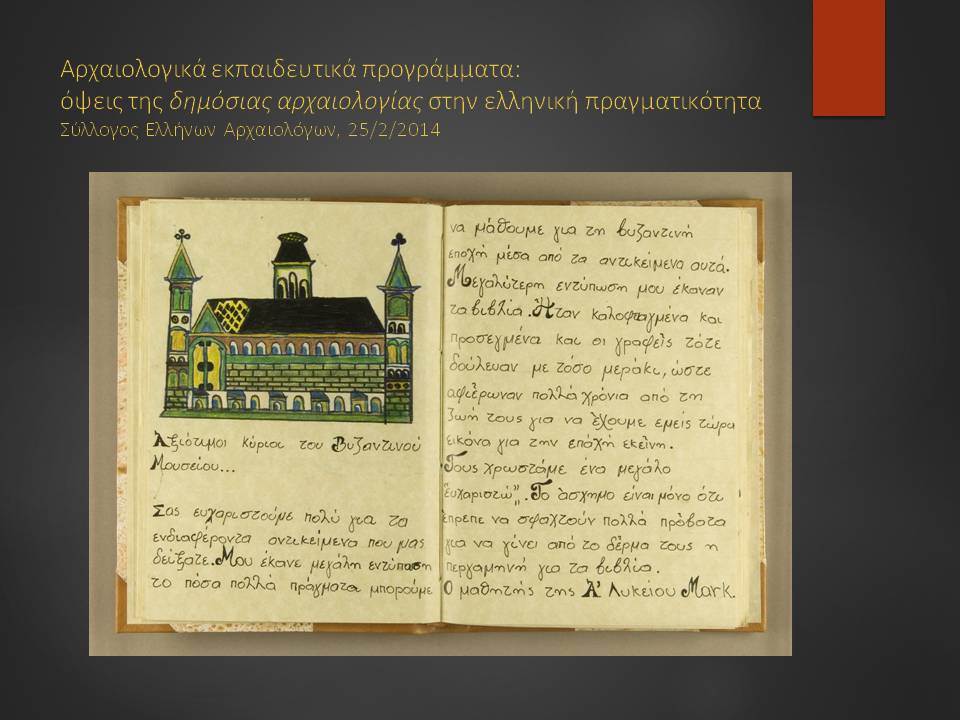 Αρχαιολογικά εκπαιδευτικά προγράμματα:
όψεις της δημόσιας αρχαιολογίας στην ελληνική πραγματικότητα
Σύλλογος Ελλήνων Αρχαιολόγων, 25/2/2014
Ἀξιότιμοι κύριοι του Βυζαντινού
Μουσείου...
Σας ευχαριστούμε πολύ για τα
ενδιαφέροντα αντικείμενα που μας
δείξατε. Μου έκανε μεγάλη εντύπωση
το πόσα πολλά πράγματα μπορούμε
να μάθουμε για τη βυζαντινή
εποχή μέσα από τα αντικείμενα αυτά.
Μεγαλύτερη εντύπωση μου έκαναν
τα βιβλία. Ἦταν καλοφτιαγμένα και
προσεγμένα και οι γραφεῖς τότε
δούλευαν με τόσο μεράκι, ώστε
αφιέρωναν πολλά χρόνια από τη
ζωή τους για να ἔχουμε εμείς τώρα
εικόνα για την εποχή εκείνη.
Τους χρωστάμε ένα μεγάλο
"ευχαριστώ". Το ἀσχημο είναι μόνο ότι
έπρεπε να σφαχτούν πολλά πρόβατα
για να γίνει από το δέρμα τους η
περγαμηνή για τα βιβλία.
Ο μαθητής της Α' Λυκείου Mark.